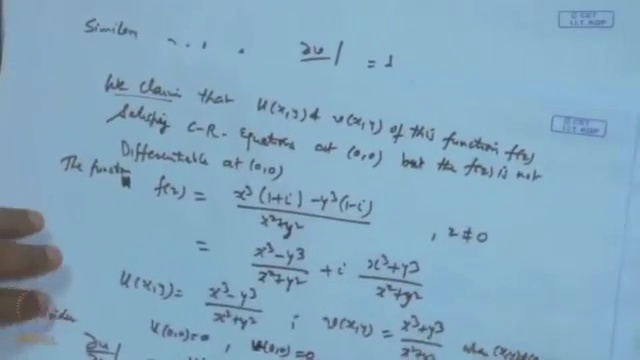 ∂v/ = 1
© CET
I.I.T. KGP
We claim that u(x,y) & v(x,y) of this function f(z)
Satisfy C-R- Equations at (0,0) but the f(z) is not
Differentiable at (0,0)
© CET
I.I.T. KGP
The function f(z) = x³(1+i) - y³(1-i) / x²+y² , z ≠ 0
= x³-y³ / x²+y² + i x³+y³ / x²+y²
u(x,y) = x³-y³ / x²+y² ; v(x,y) = x³+y³ / x²+y² when
u(0,0)=0 , v(0,0)=0
∂u